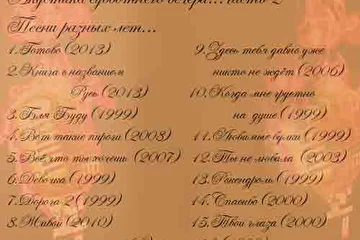 Акустика субботнего вечера... часть 2
Песни разных лет...
1. Готово (2013)
2. Книга с названием
Русь (2013)
3. Бля Буду (1999)
4. Вот такие пироги (2008)
5. Всё что ты хочешь (2007)
6. Девочка (1999)
7. Дорога 2 (1999)
8. Живой (2010)
9. Здесь тебя давно уже
никто не ждёт (2006)
10. Когда мне грустно
на душе (1999)
11. Любимые булки (1999)
12. Ты не любила (2003)
13. Рокендроль (1999)
14. Спасибо (2000)
15. Твои глаза (2000)